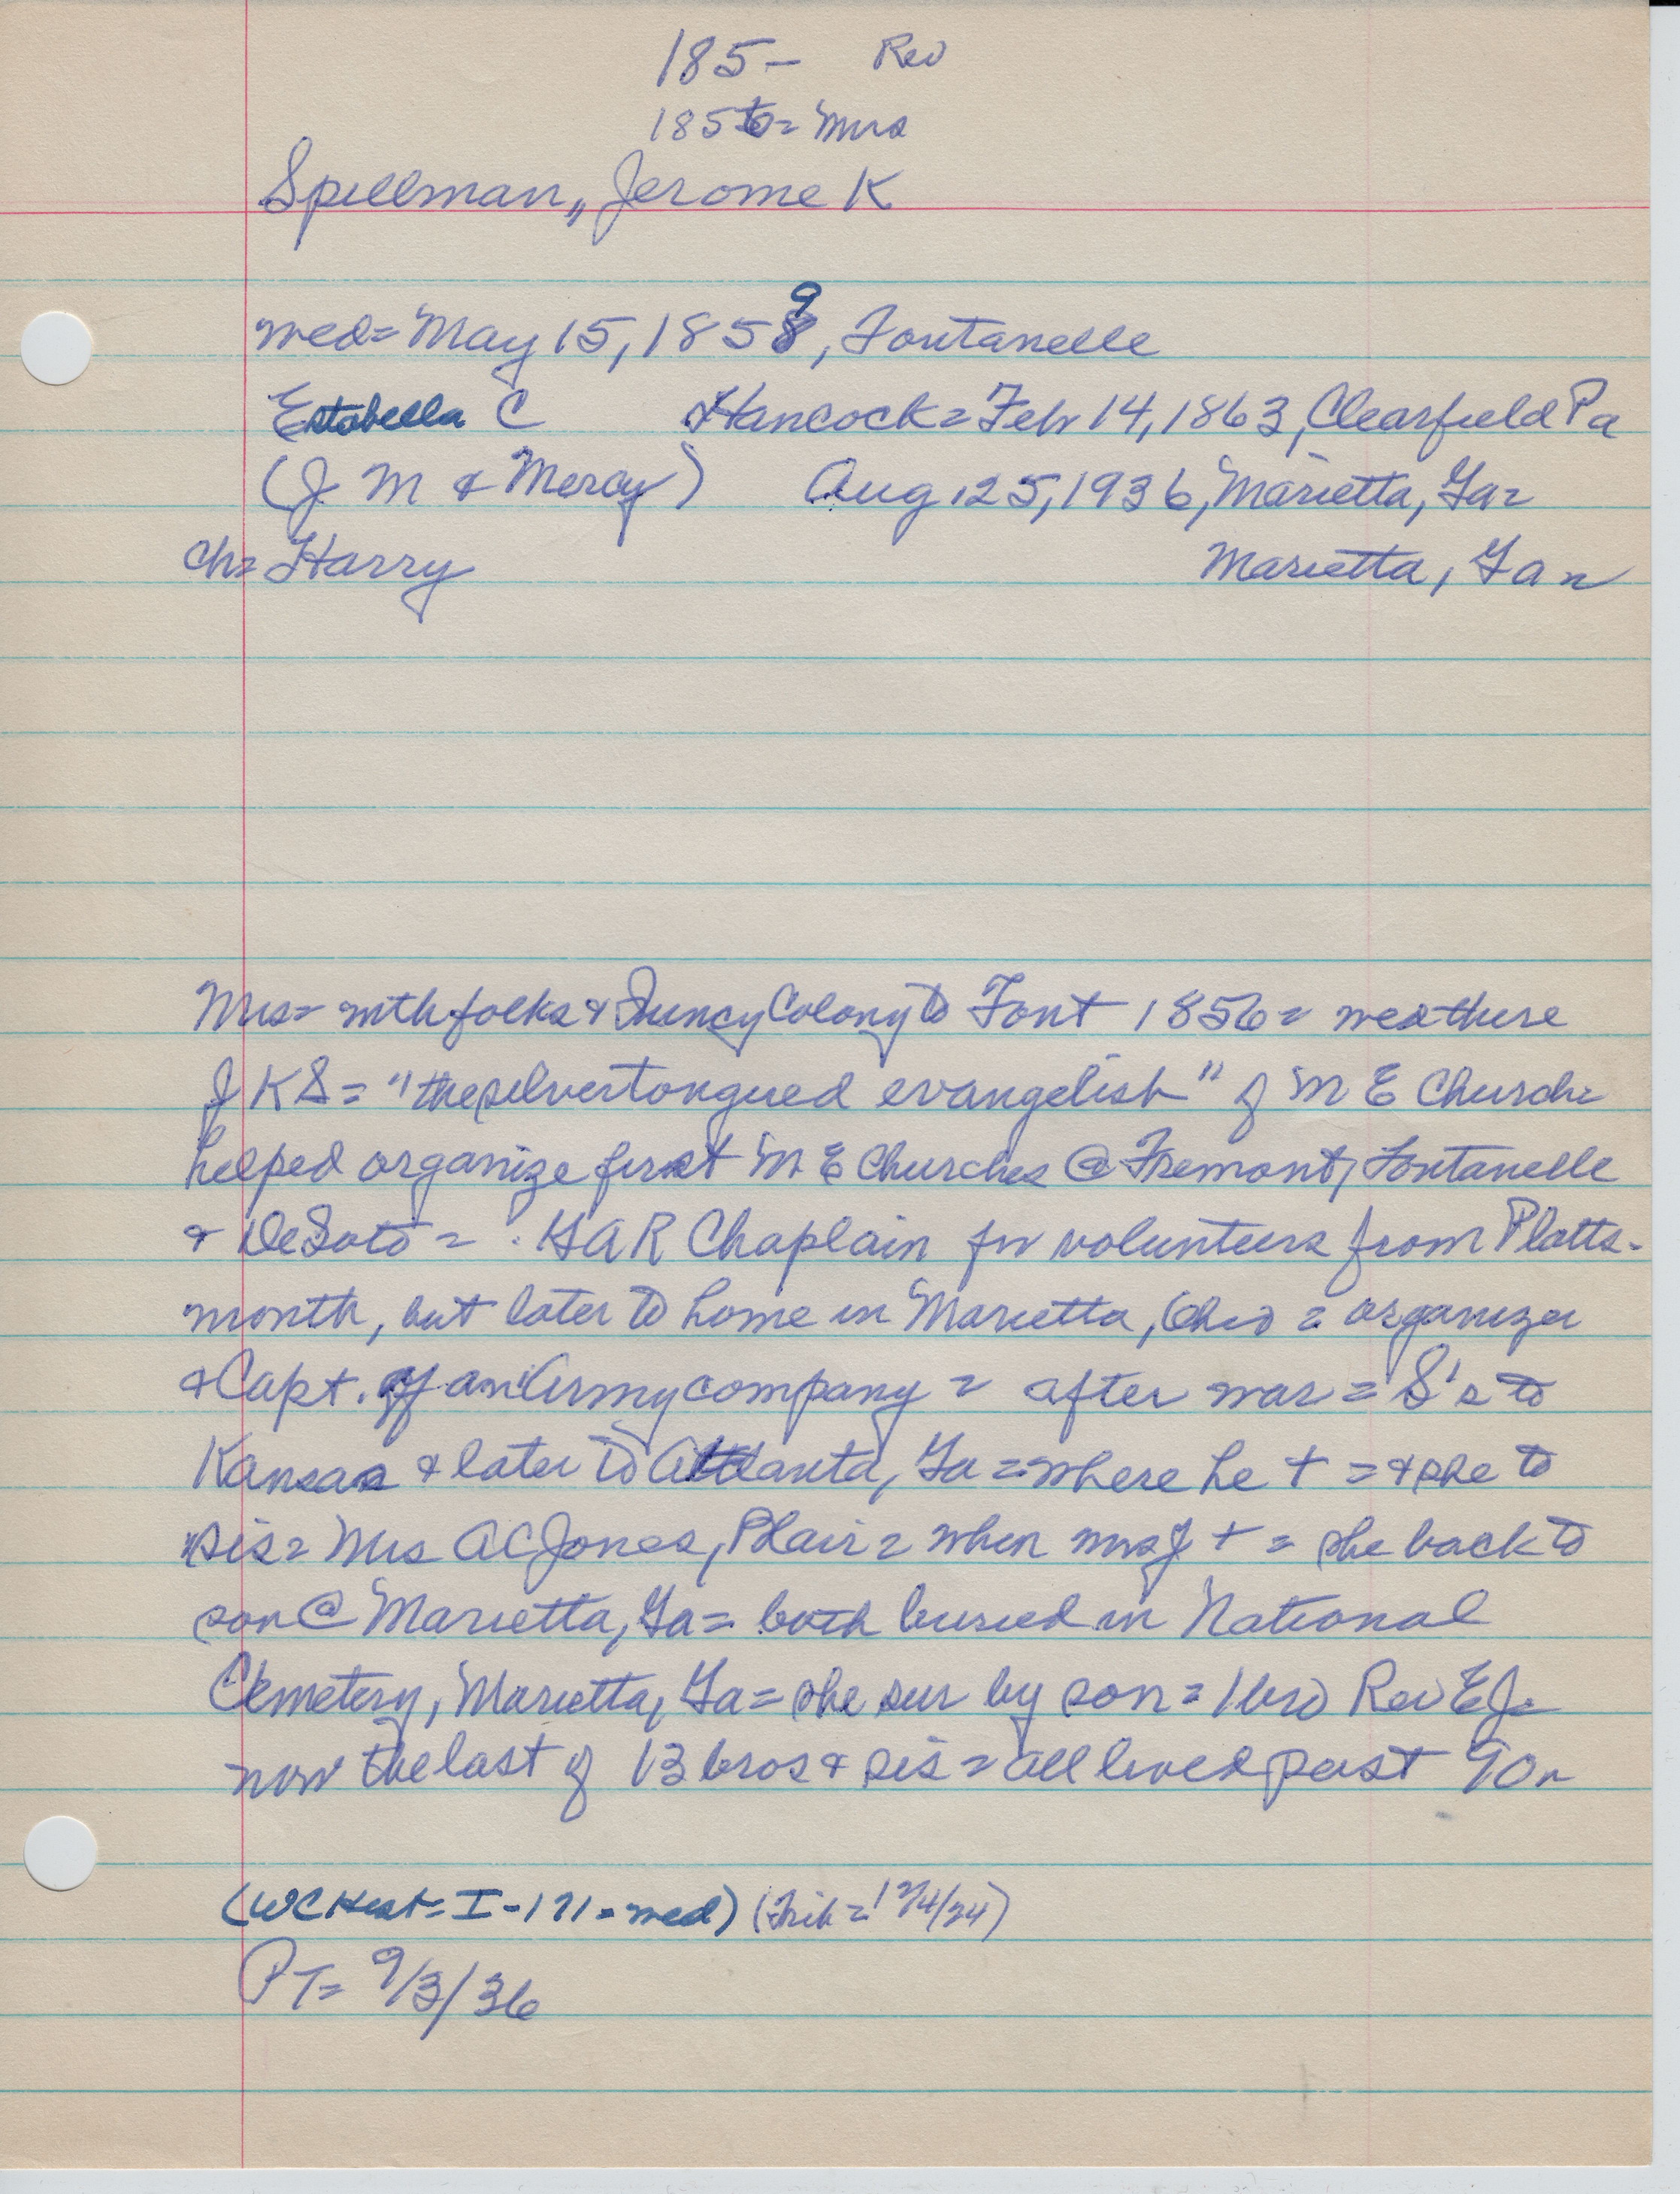 185– Rev
1856= Mrs
Spellman,, Jerome K
wed= May 15, 1859, Fontanelle
Estabella C Hancock= Feb 14, 1863, Clearfield Pa
(J M & Mercy) Aug 25, 1936, Marietta, Ga=
ch= Harry Marietta, Ga=
Mrs= with folks & Quincy Colony to Font 1856= wed there
J K S= "the silver tongued evangelist" of M E Church=
helped organize first M E Churches @ Fremont, Fontanelle
& DeSoto= GAR Chaplain for volunteers from Platts-
mouth, but later to home in Marietta, Ohio= organizer
& Capt. of an Army company= after war= S's to
Kansas & later to Atlanta, Ga= where he += & she to
sis= Mrs A C Jones, Blair= when Mrs J += she back to
son @ Marietta, Ga= both buried in National
Cemetery, Marietta, Ga= she sur by son= 1 bro Rev E J=
now the last of 13 bros & sis= all lived past 90=
(WC Hist= I-171= wed)
PT= 9/3/36